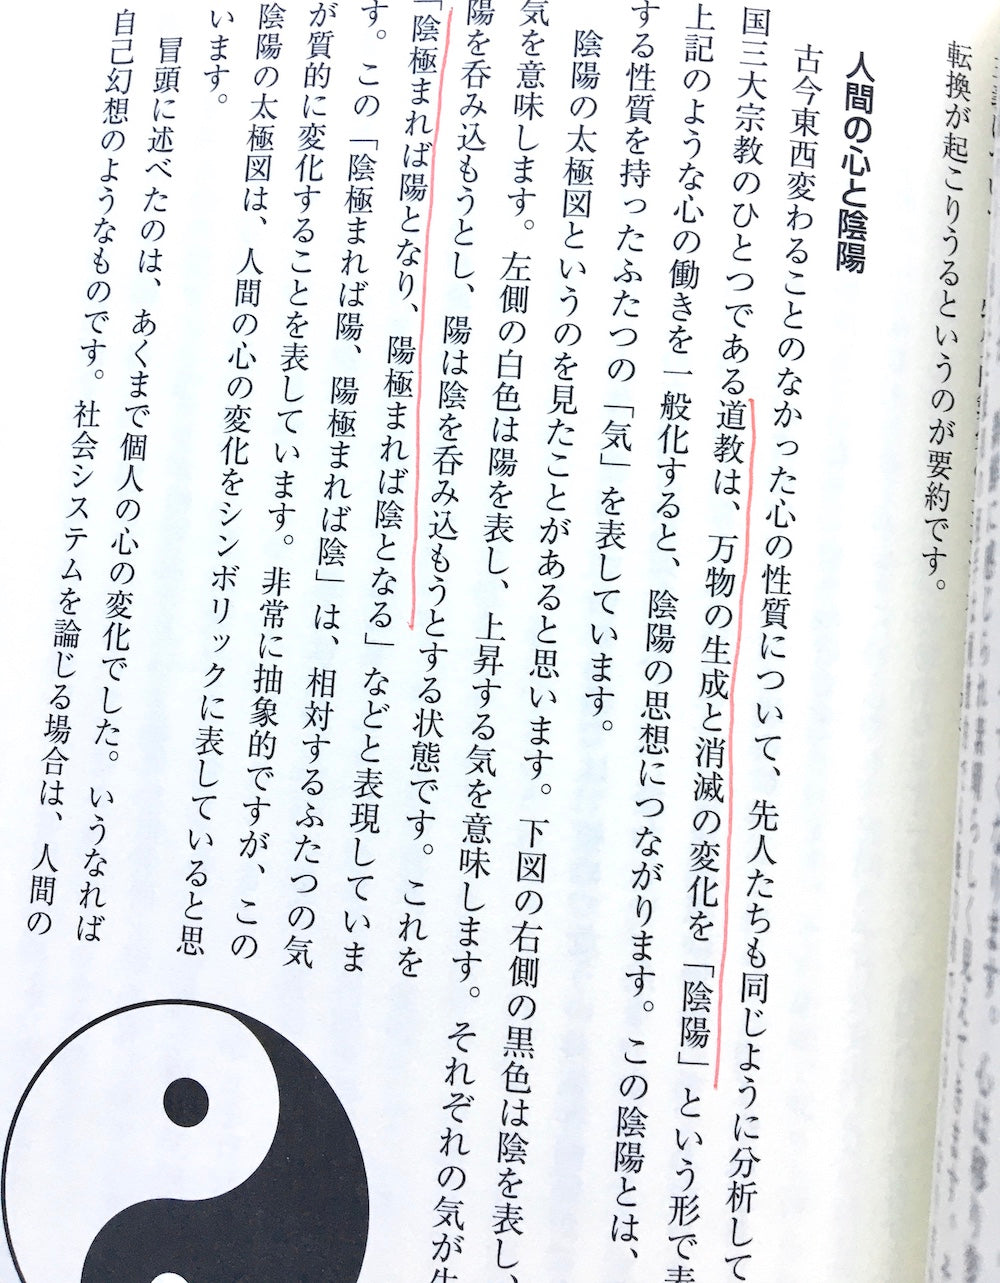 転換が起こりうるというのが要約です。
人間の心と陰陽
古今東西変わることのなかった心の性質について、先人たちも同じように分析して
国三大宗教のひとつである道教は、万物の生成と消滅の変化を「陰陽」という形で表
上記のような心の働きを一般化すると、陰陽の思想につながります。この陰陽とは、
する性質を持ったふたつの「気」を表しています。
陰陽の太極図というのを見たことがあると思います。下図の右側の黒色は陰を表し、
気を意味します。左側の白色は陽を表し、上昇する気を意味します。それぞれの気が
陽を呑み込もうとし、陽は陰を呑み込もうとする状態です。これを
「陰極まれば陽となり、陽極まれば陰となる」などと表現していま
す。この「陰極まれば陽、陽極まれば陰」は、相対するふたつの気
が質的に変化することを表しています。非常に抽象的ですが、この
陰陽の太極図は、人間の心の変化をシンボリックに表していると思
います。
冒頭に述べたのは、あくまで個人の心の変化でした。いうなれば
自己幻想のようなものです。社会システムを論じる場合は、人間の